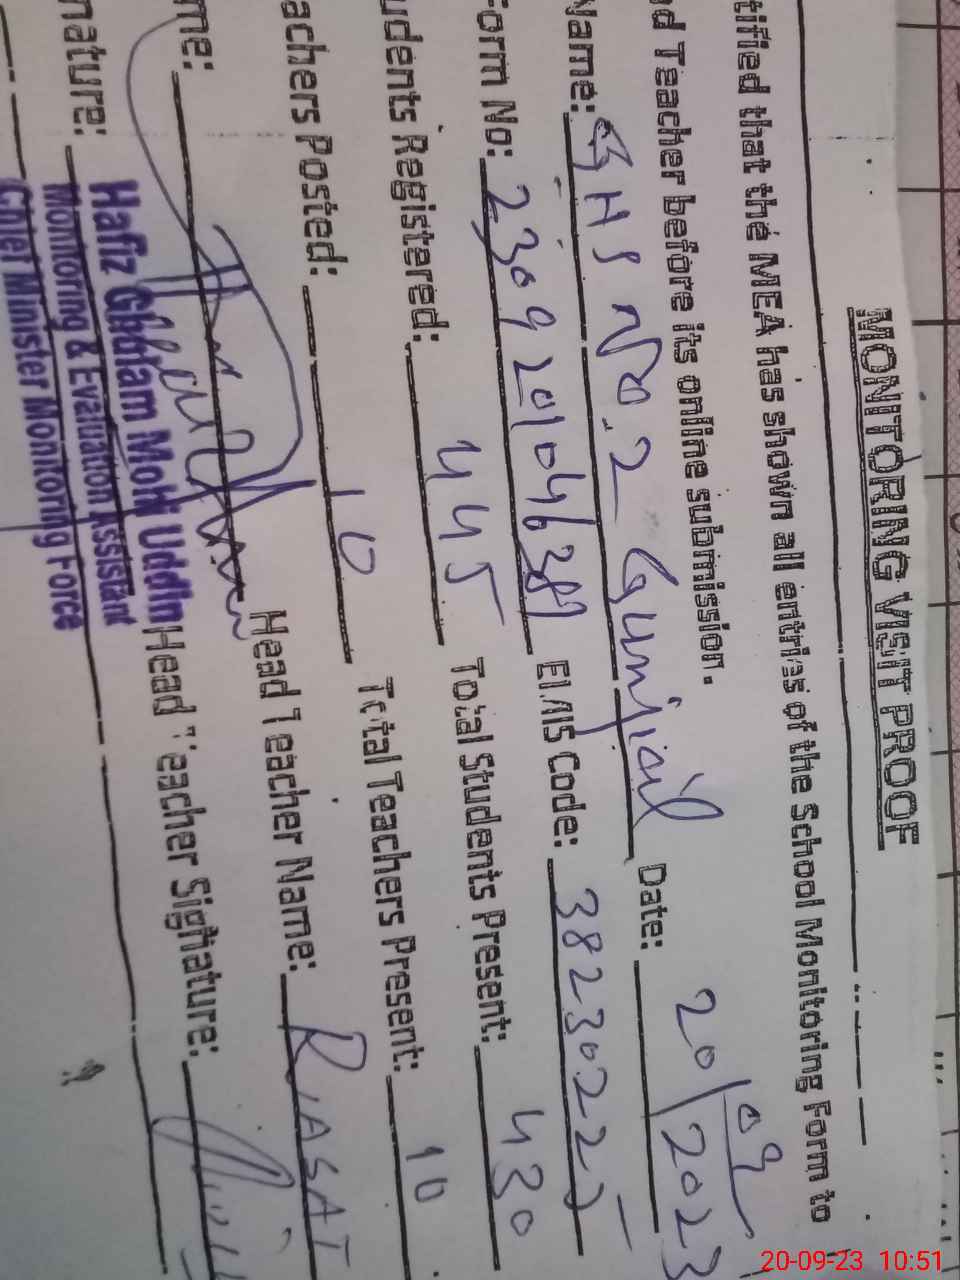 MONITORING VISIT PROOF
tified that the MEA has shown all entries of the School Monitoring Form to
d Teacher before its online submission.
Name: GHS No. 2 Gunjial Date: 20/09/2023
orm No: EMIS Code: 3823022
udents Registered: 445 Total Students Present: 430
achers Posted: 10 Total Teachers Present: 10
me: Head Teacher Name: RIASAT
nature: Head Teacher Signature:
Hafiz Ghulam Mohi Uddin
Monitoring & Evaluation Assistant
Chief Minister Monitoring Force
20-09-23 10:51